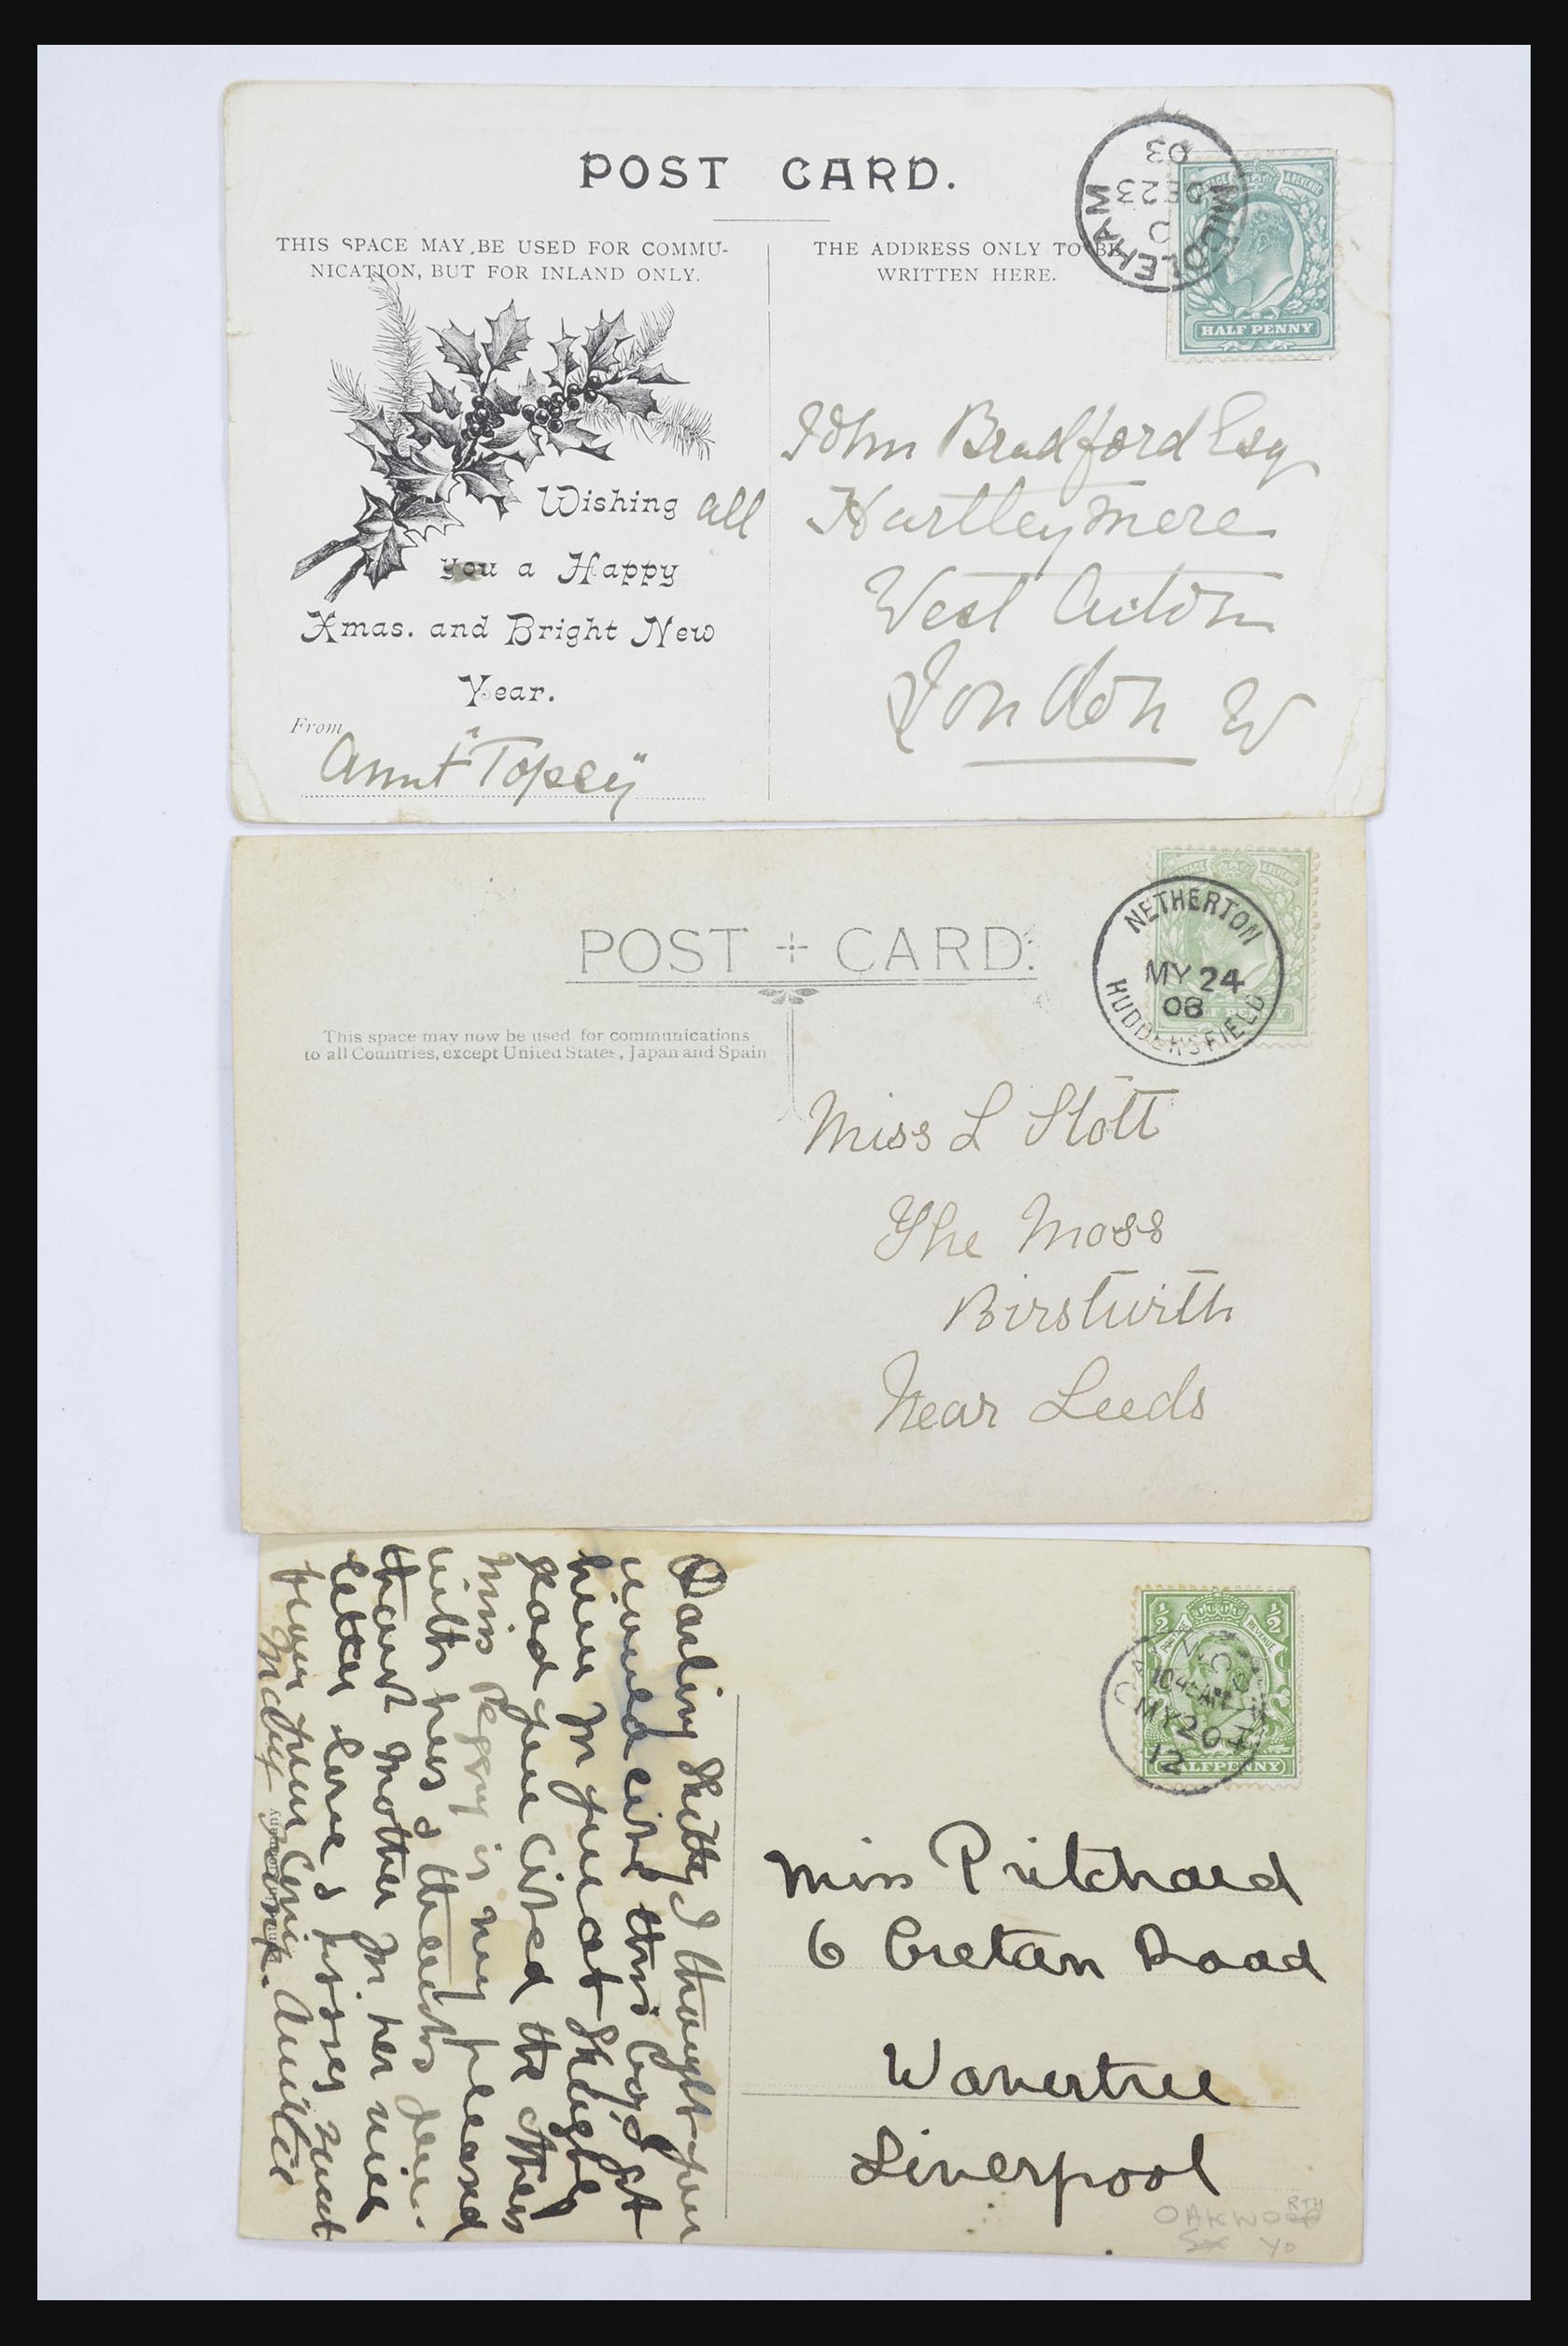 POST CARD.
THIS SPACE MAY BE USED FOR COMMU-
NICATION, BUT FOR INLAND ONLY.
THE ADDRESS ONLY TO BE
WRITTEN HERE.
MIDDLEHAM
D
DE 23
03
HALF PENNY
Wishing all
you a Happy
Xmas. and Bright New
Year.
From
Aunt "Topsey"
John Bradford Esq
Hartleymere
West Acton
London W
POST CARD.
This space may now be used for communications
to all Countries, except United States, Japan and Spain
NETHERTON
MY 24
08
HUDDERSFIELD
Miss L Stott
The Moss
Birstwith
Near Leeds
Darling Sheila I thought you
would like this
from
glad you liked the other
Miss Peggy is very pleased
with hers &
thank Mother for her nice
letter love & kisses sweet
from your loving Auntie
May
1/2 1/2
POSTAGE REVENUE
HALFPENNY
MY 20
12
Miss Pritchard
6 Cretan Road
Wavertree
Liverpool
OAKWORTH
YO